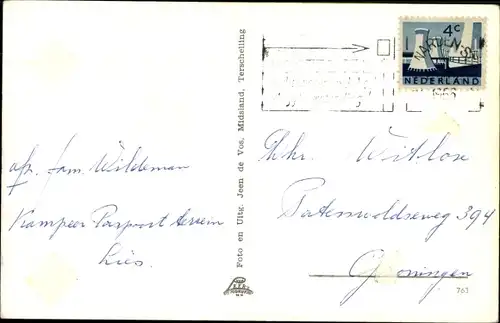 afz. fam. Wildeman
Kampeer Paspoort terrein
Lies.
Foto en Uitg. Jeen de Vos, Midsland, Terschelling
4c
NEDERLAND
NAARDEN
Fam. Witlox
Paterswoldseweg 394
Groningen
763